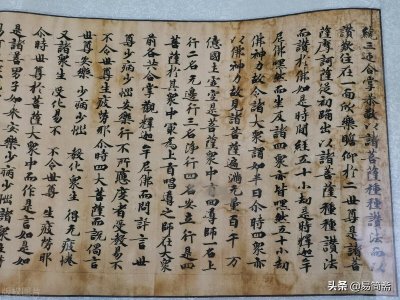 繞三迊合掌恭敬以諸菩薩種種讚法而以
讚歎住在一面欣樂瞻仰於二世尊是諸菩
薩摩訶薩從初踊出以諸菩薩種種讚法
而讚於佛如是時間經五十小劫是時釋迦牟
尼佛嘿然而坐及諸四衆亦皆嘿然五十小劫
佛神力故令諸大衆謂如半日尒時四衆亦
以佛神力故見諸菩薩遍滿无量百千万
億國土虛空是菩薩衆中有四導師一名上
行二名无邊行三名淨行四名安立行是四
菩薩於其衆中最為上首唱導之師在大衆
前各共合掌觀釋迦牟尼佛而問訊言世尊
少病少惱安樂行不所應度者受教易不
不令世尊生疲勞耶尒時四大菩薩而說偈言
世尊安樂 少病少惱 教化衆生 得无疲惓
又諸衆生 受化易不 不令世尊 生疲勞耶
尒時世尊於菩薩大衆中而作是言如是如
是諸善男子如來安樂少病少惱諸衆生
头条 @易简斋